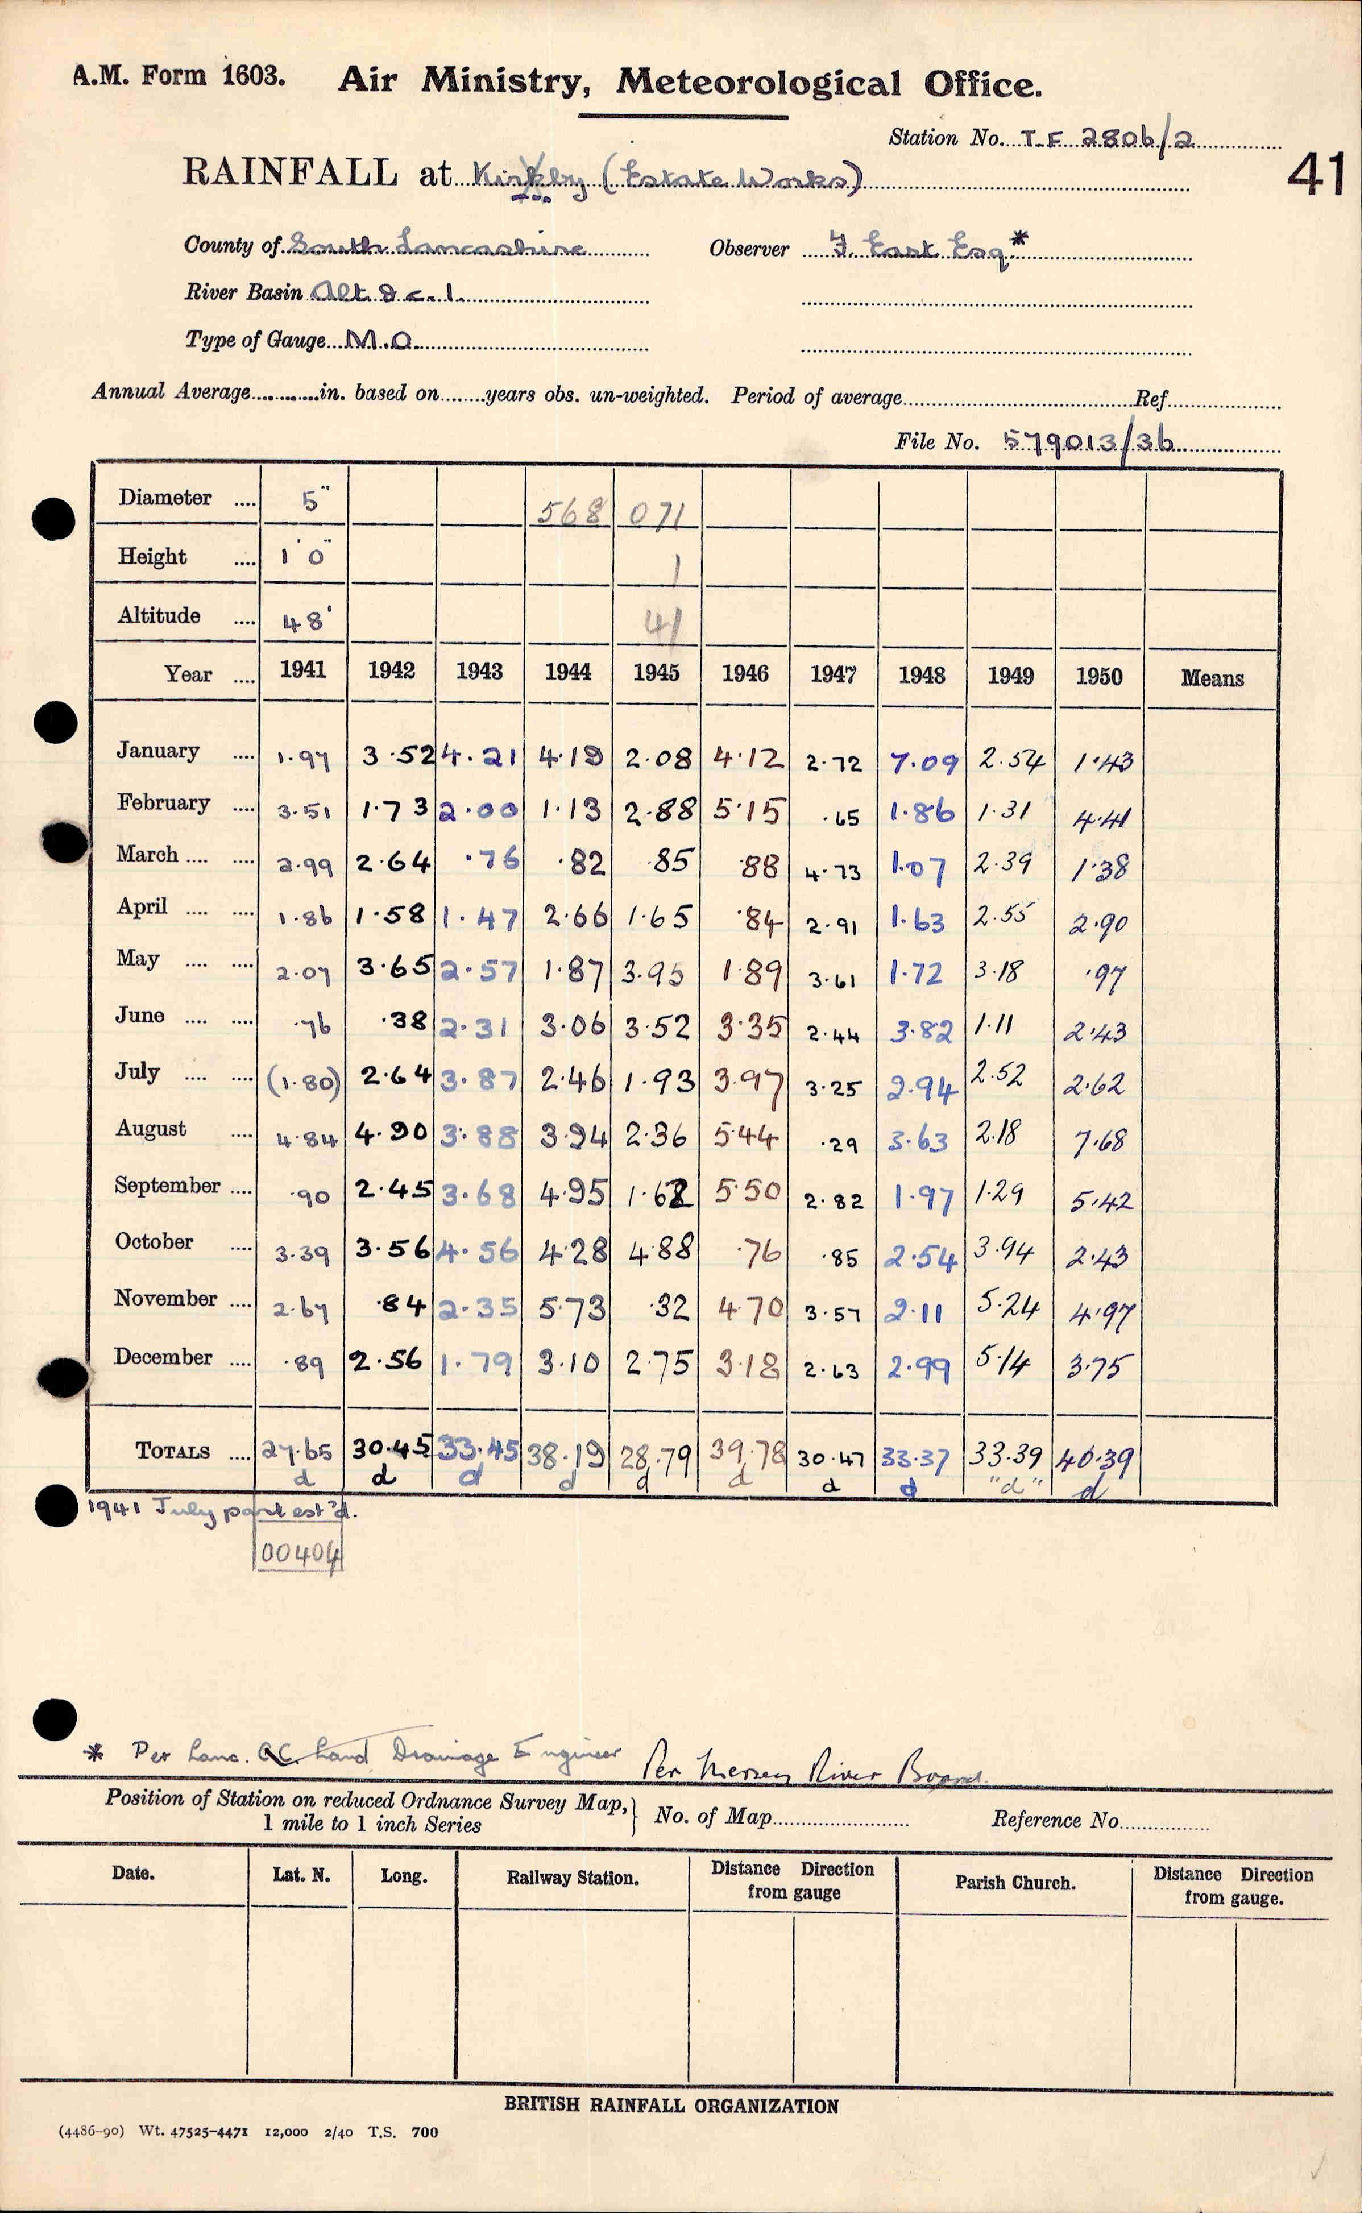 A.M. Form 1603. Air Ministry, Meteorological Office.
Station No. T.F 2806/2
41
RAINFALL at Kirkby (Estate Works)
County of South Lancashire Observer F East Esq*
River Basin Alt & c. 1.
Type of Gauge M.O.
Annual Average............in. based on........years obs. un-weighted. Period of average Ref.
File No. 579013/36
Diameter .... 5" 568 071
Height .... 1' 0" 1
Altitude .... 48' 41
Year .... 1941 1942 1943 1944 1945 1946 1947 1948 1949 1950 Means
January .... 1.97 3.52 4.21 4.19 2.08 4.12 2.72 7.09 2.54 1.43
February .... 3.51 1.73 2.00 1.13 2.88 5.15 .65 1.86 1.31 4.41
March .... .... 2.99 2.64 .76 .82 .85 .88 4.73 1.07 2.39 1.38
April .... .... 1.86 1.58 1.47 2.66 1.65 .84 2.91 1.63 2.55 2.90
May .... .... 2.07 3.65 2.57 1.87 3.95 1.89 3.61 1.72 3.18 .97
June .... .... .76 .38 2.31 3.06 3.52 3.35 2.44 3.82 1.11 2.43
July .... .... (1.80) 2.64 3.87 2.46 1.93 3.97 3.25 2.94 2.52 2.62
August .... 4.84 4.90 3.88 3.94 2.36 5.44 .29 3.63 2.18 7.68
September .... .90 2.45 3.68 4.95 1.62 5.50 2.82 1.97 1.29 5.42
October .... 3.39 3.56 4.56 4.28 4.88 .76 .85 2.54 3.94 2.43
November .... 2.67 .84 2.35 5.73 .32 4.70 3.57 2.11 5.24 4.97
December .... .89 2.56 1.79 3.10 2.75 3.18 2.63 2.99 5.14 3.75
TOTALS .... 27.65 30.45 33.45 38.19 28.79 39.78 30.47 33.37 33.39 40.39
d d d d d d d d "d" d
1941 July part est'd.
00404
* Per Lanc. C.C. Land Drainage Engineer Per Mersey River Board.
Position of Station on reduced Ordnance Survey Map, 1 mile to 1 inch Series } No. of Map Reference No.
Date. Lat. N. Long. Railway Station. Distance Direction from gauge Parish Church. Distance Direction from gauge.
BRITISH RAINFALL ORGANIZATION
(4486-90) Wt. 47525-4471 12,000 2/40 T.S. 700